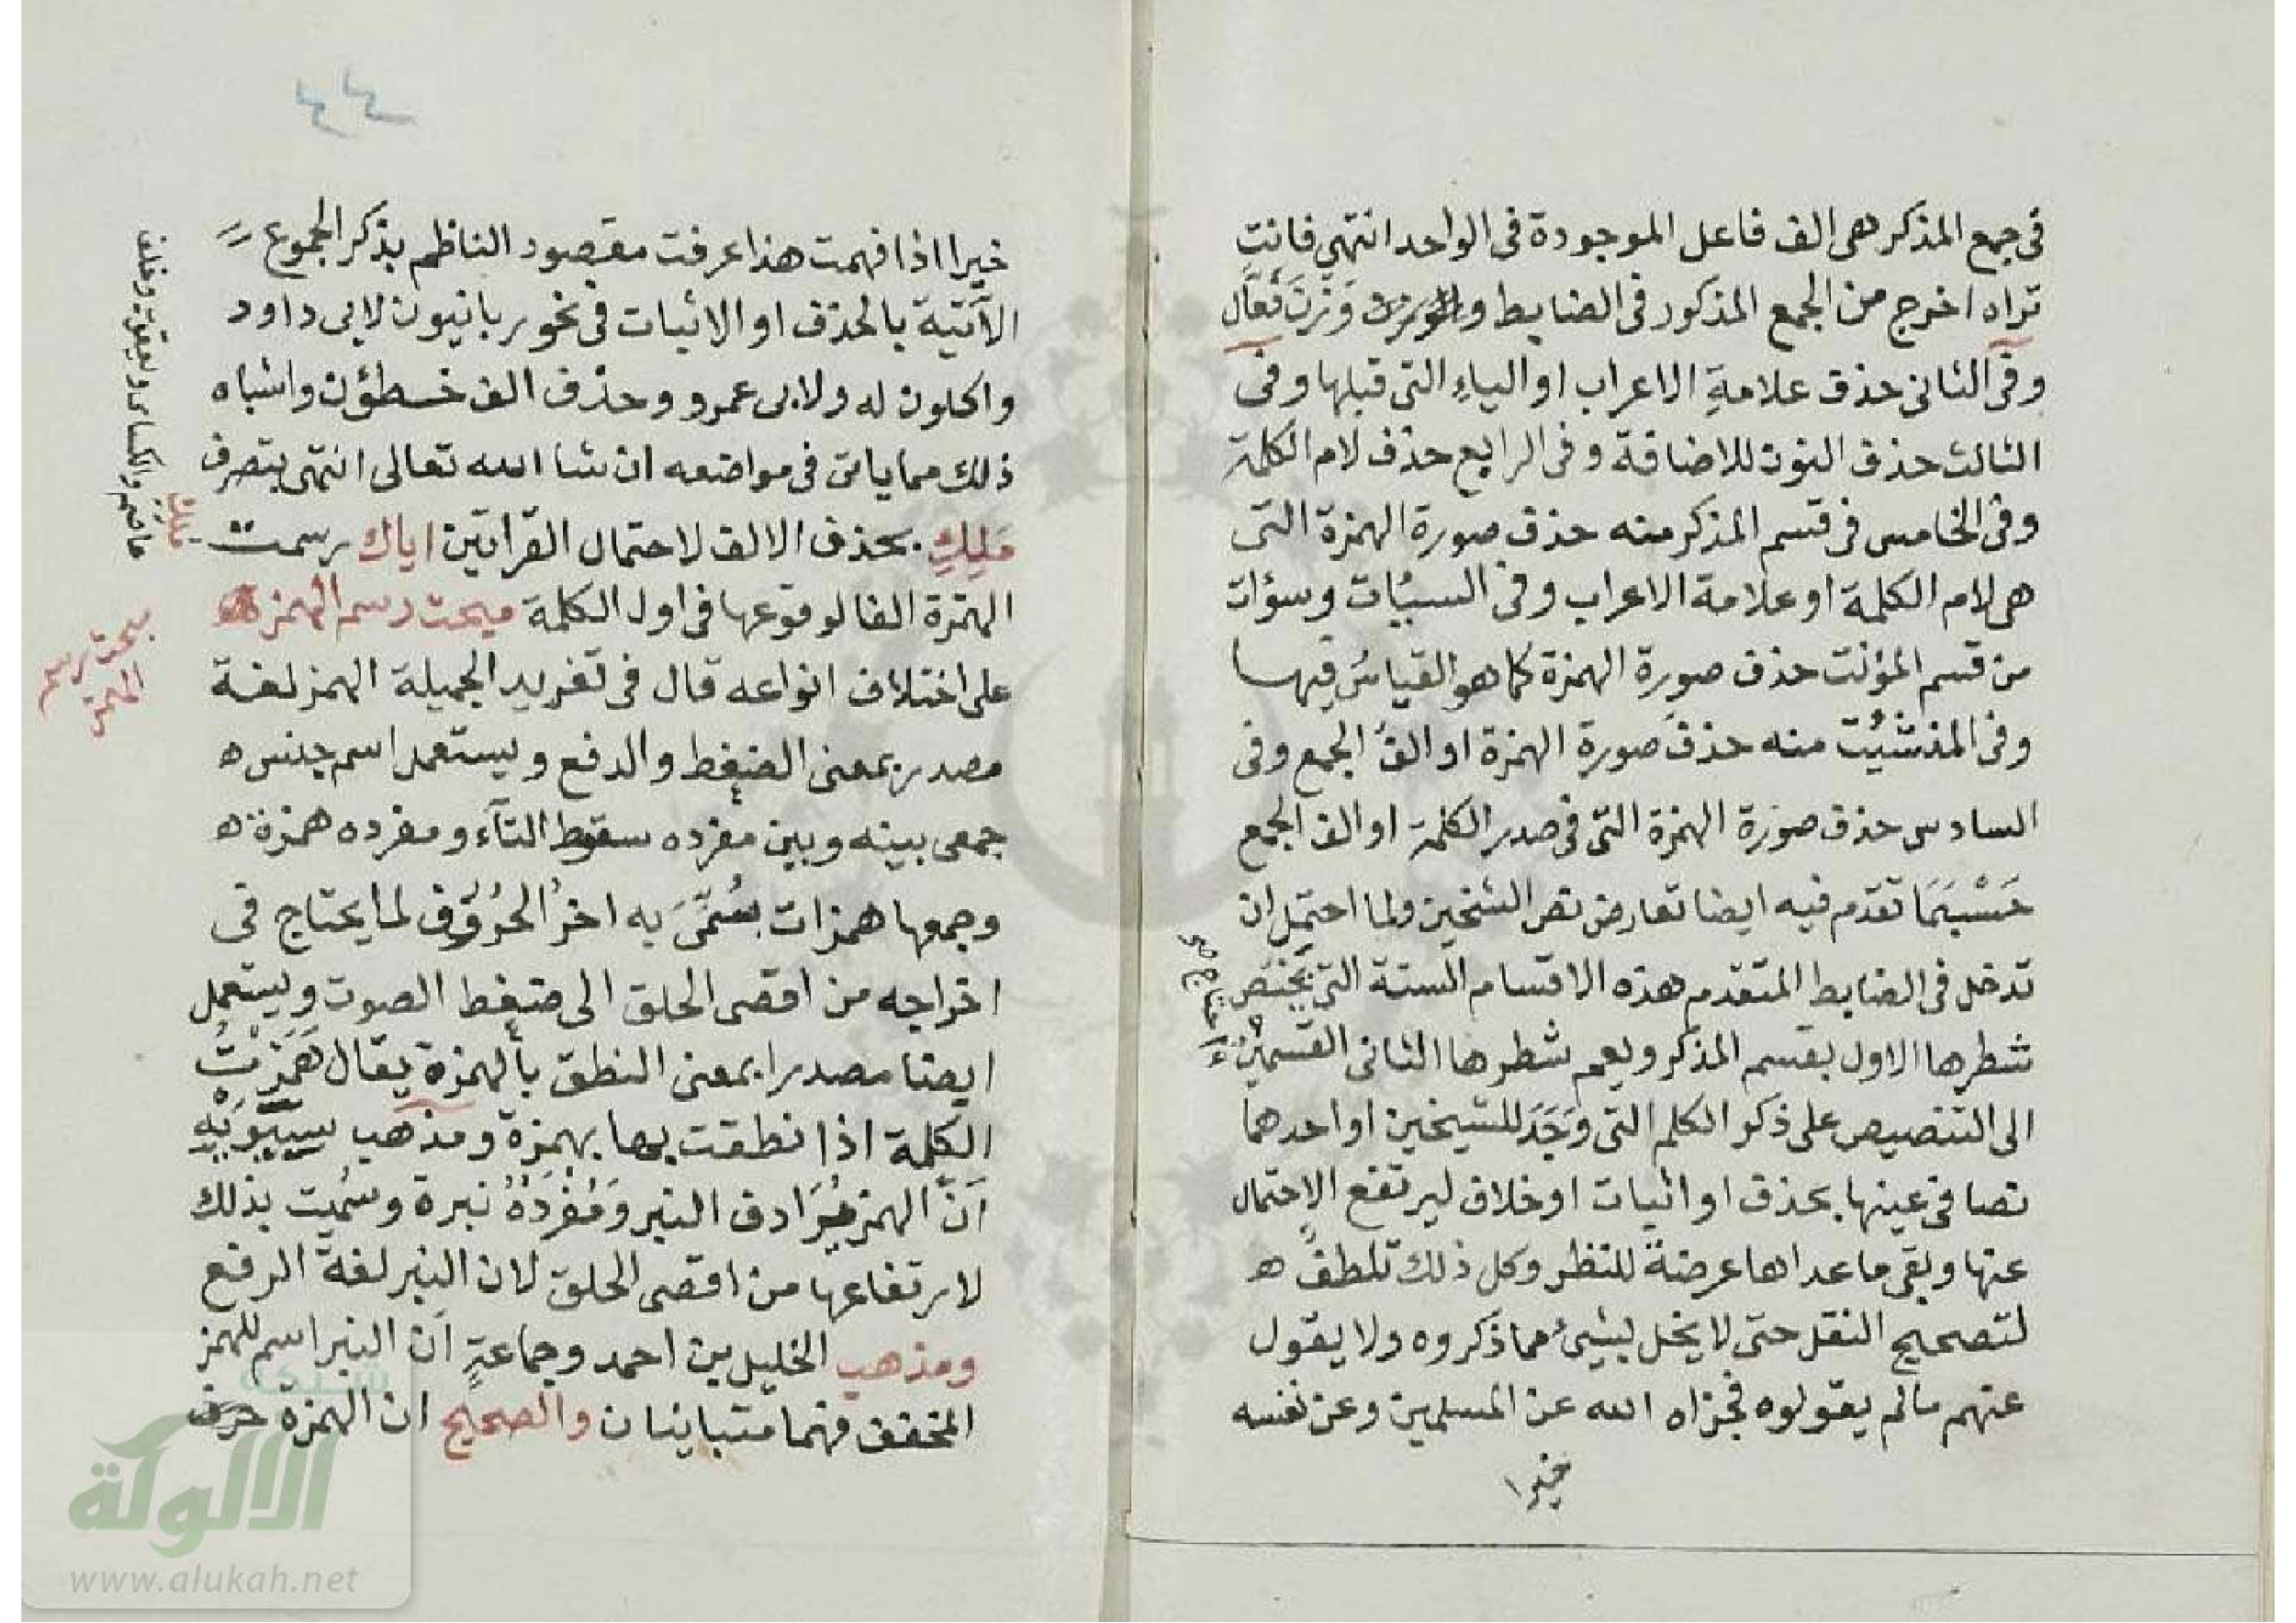 في جمع المذكر هى الف فاعل الموجودة فى الواحد انتهى فانت
تراه اخرج من الجمع المذكور فى الضابط وزن فعال
وفى الثانى حذف علامة الاعراب او الياء التى قبلها وفى
الثالث حذف النون للاضافة وفى الرابع حذف لام الكلمة
وفى الخامس فى قسم المذكر منه حذف صورة الهمزة التى
هى لام الكلمة او علامة الاعراب وفى السيئات وسؤات
من قسم المؤنث حذف صورة الهمزة كما هو القياس فيها
وفى المنشئت منه حذف صورة الهمزة او الف الجمع وفى
السادس حذف صورة الهمزة التى فى صدر الكلمة او الف الجمع
حَسْبَمَا تقدم فيه ايضا تعارض نص الشيخين ولما احتمل ان
تدخل فى الضابط المتقدم هذه الاقسام الستة التى يختص
شطرها الاول بقسم المذكر ويعم شطرها الثانى القسمين
احتاج صح
الى التنصيص على ذكر الكلم التى وَجَدَ للشيخين او احدهما
نصا فى عينها بحذف او اثبات او خلاف ليرتفع الاحتمال
عنها وبقى ما عداها عرضة للنظر وكل ذلك تلطف ه
لتصحيح النقل حتى لا يخل بشىء مما ذكروه ولا يقول
عنهم مالم يقولوه فجزاه الله عن المسلمين وعن نفسه
خيرا
٤٤
خيرا اذا فهمت هذا عرفت مقصود الناظم بذكر الجموع
الآتية بالحذف او الاثبات فى نحو ربانيون لابى داود
واكلون له ولابى عمرو وحذف الف خسطؤن واشباه
ذلك مما ياتى فى مواضعه ان شا الله تعالى انتهى بتصرف
مَلِكِ بحذف الالف لاحتمال القراتين اياك رسمت
مالك
عاصم والكسائى ويعقوب وخلف
الهمزة الفا لوقوعها فى اول الكلمة مبحث رسم الهمز
مبحث رسم
الهمز
على اختلاف انواعه قال فى تغريد الجميلة الهمز لغة
مصدر بمعنى الضغط والدفع ويستعمل اسم جنس ه
جمعى بينه وبين مفرده سقوط التآء ومفرده همزة ه
وجمعها همزات سُمِّىَ به اخرُ الحُرُوف لما يحتاج فى
اخراجه من اقصى الحلق الى ضغط الصوت ويستعمل
ايضا مصدرا بمعنى النطق بالهمزة يقال هَمَزْتُ
الكلمة اذا نطقت بها بهمزة ومذهب سيبويه
اَنَّ الهمز مُرَادف النبر وَمُفْرَدُهُ نبرة وسُميت بذلك
لارتفاعها من اقصى الحلق لان النبر لغة الرفع
ومذهب الخليل بن احمد وجماعةٍ اَن النبر اسم للهمز
المخفف فهما متباينان والصحيح ان الهمزة حرف
شبكة
الألوكة
www.alukah.net